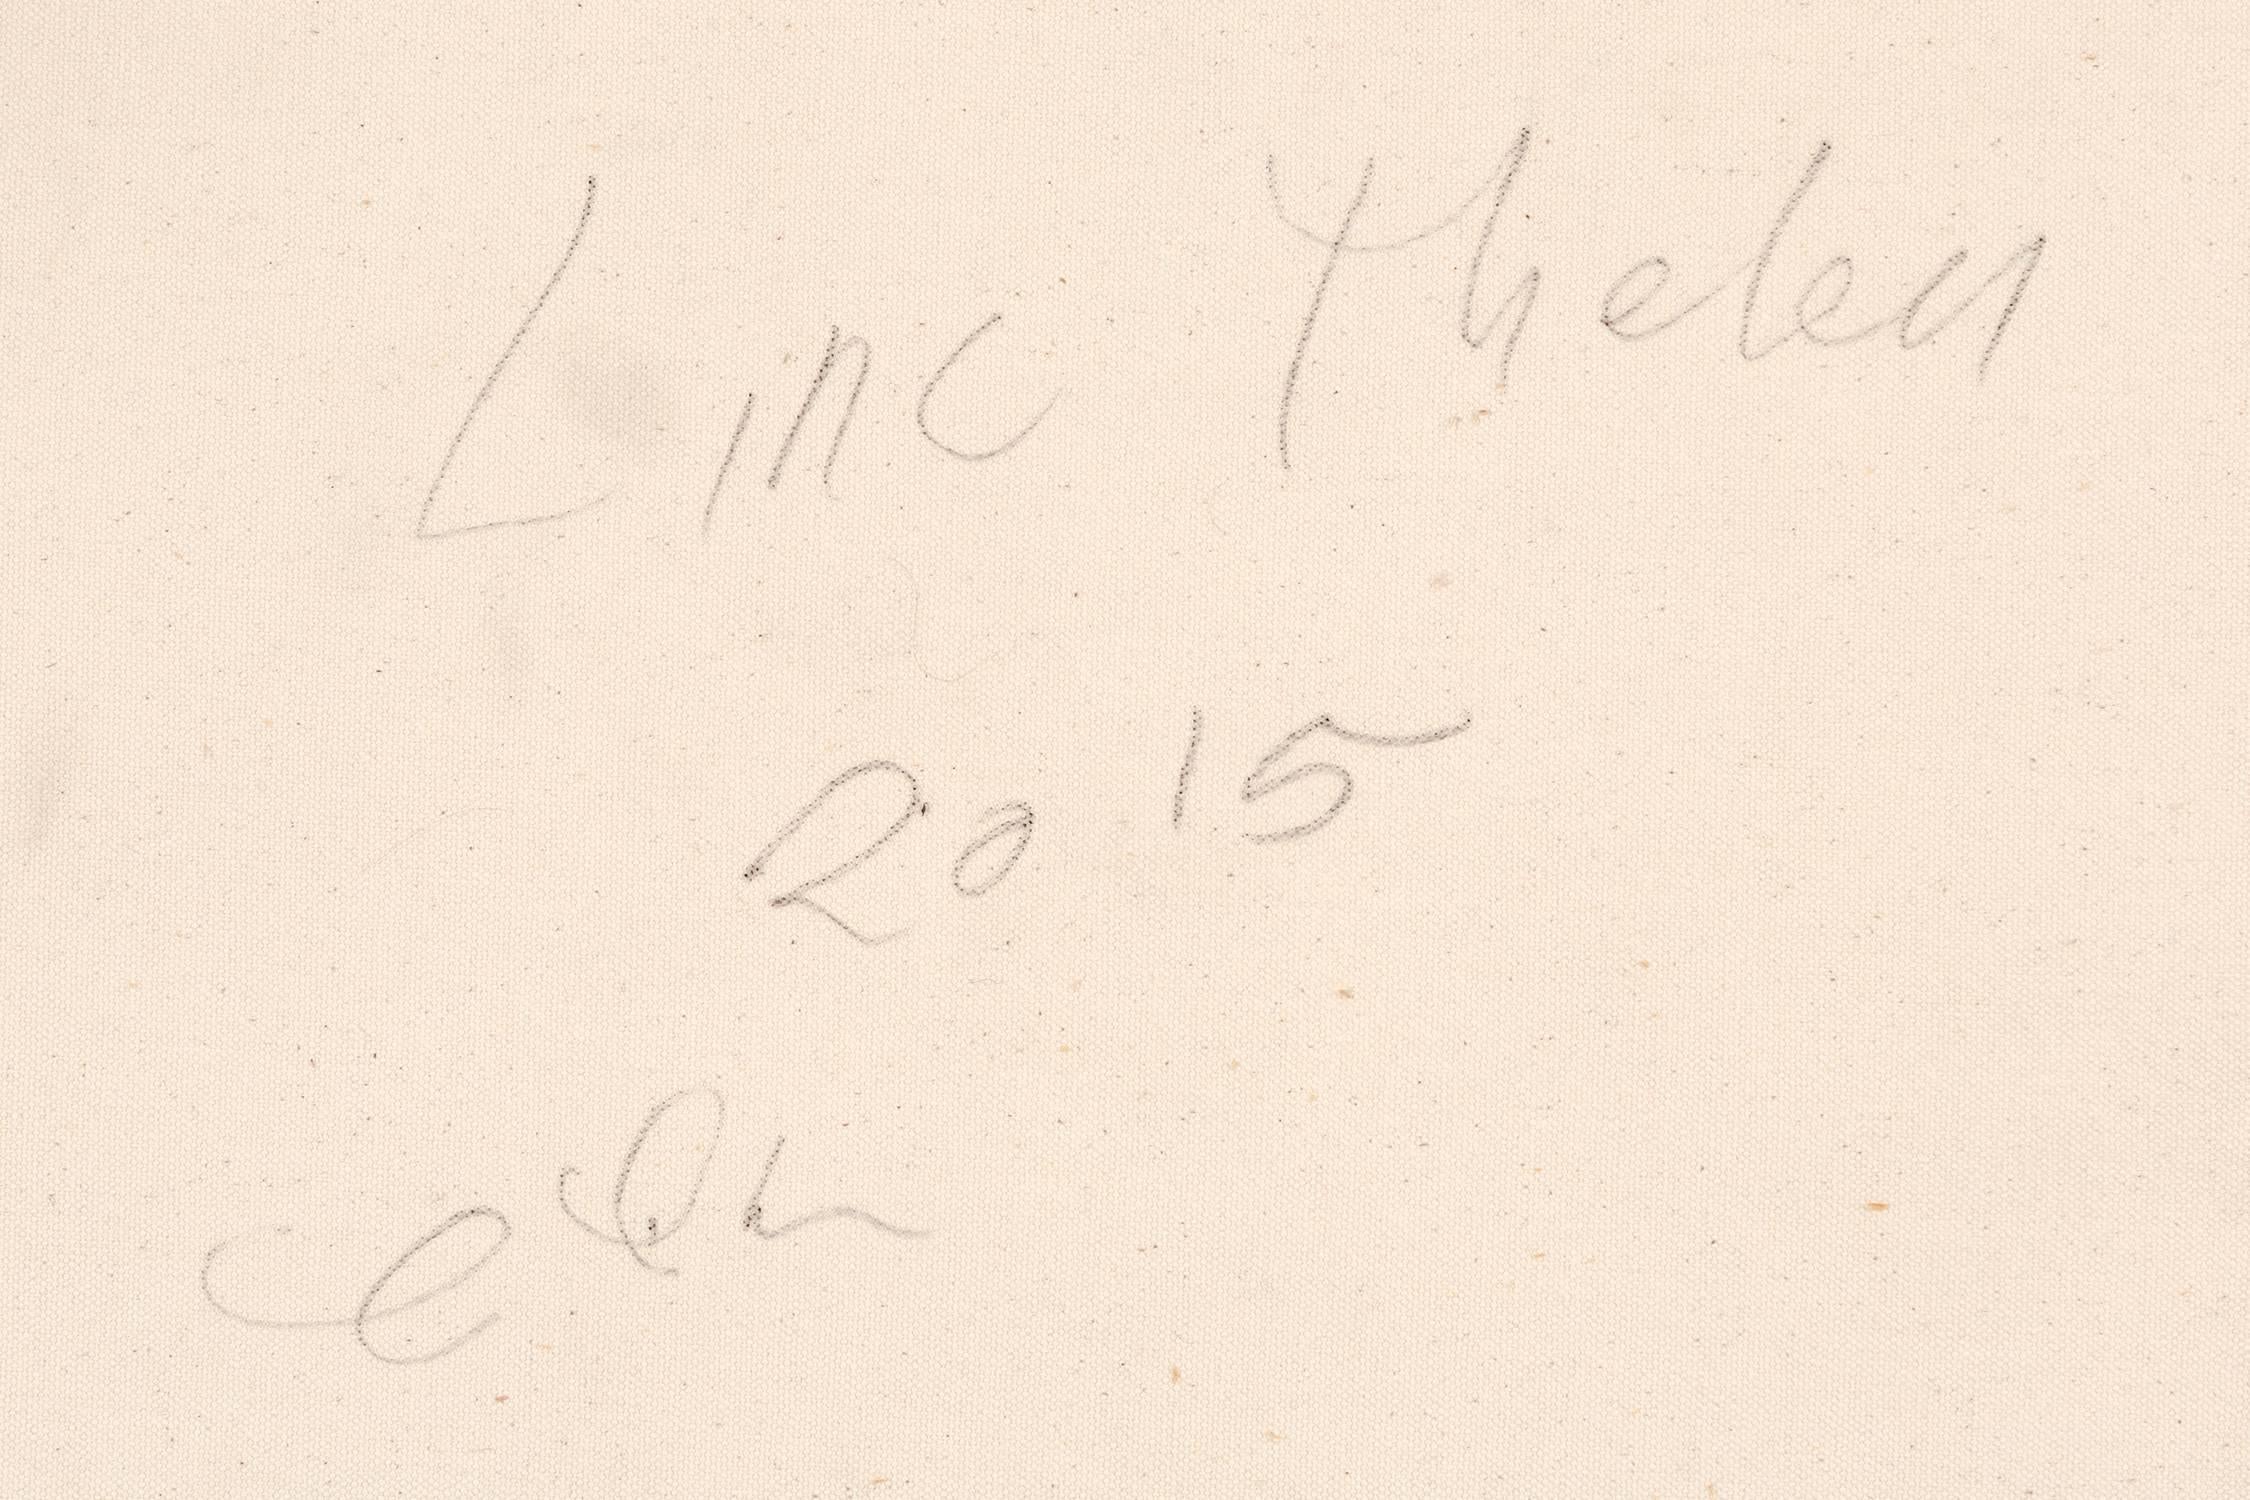 Linc Thelen
2015